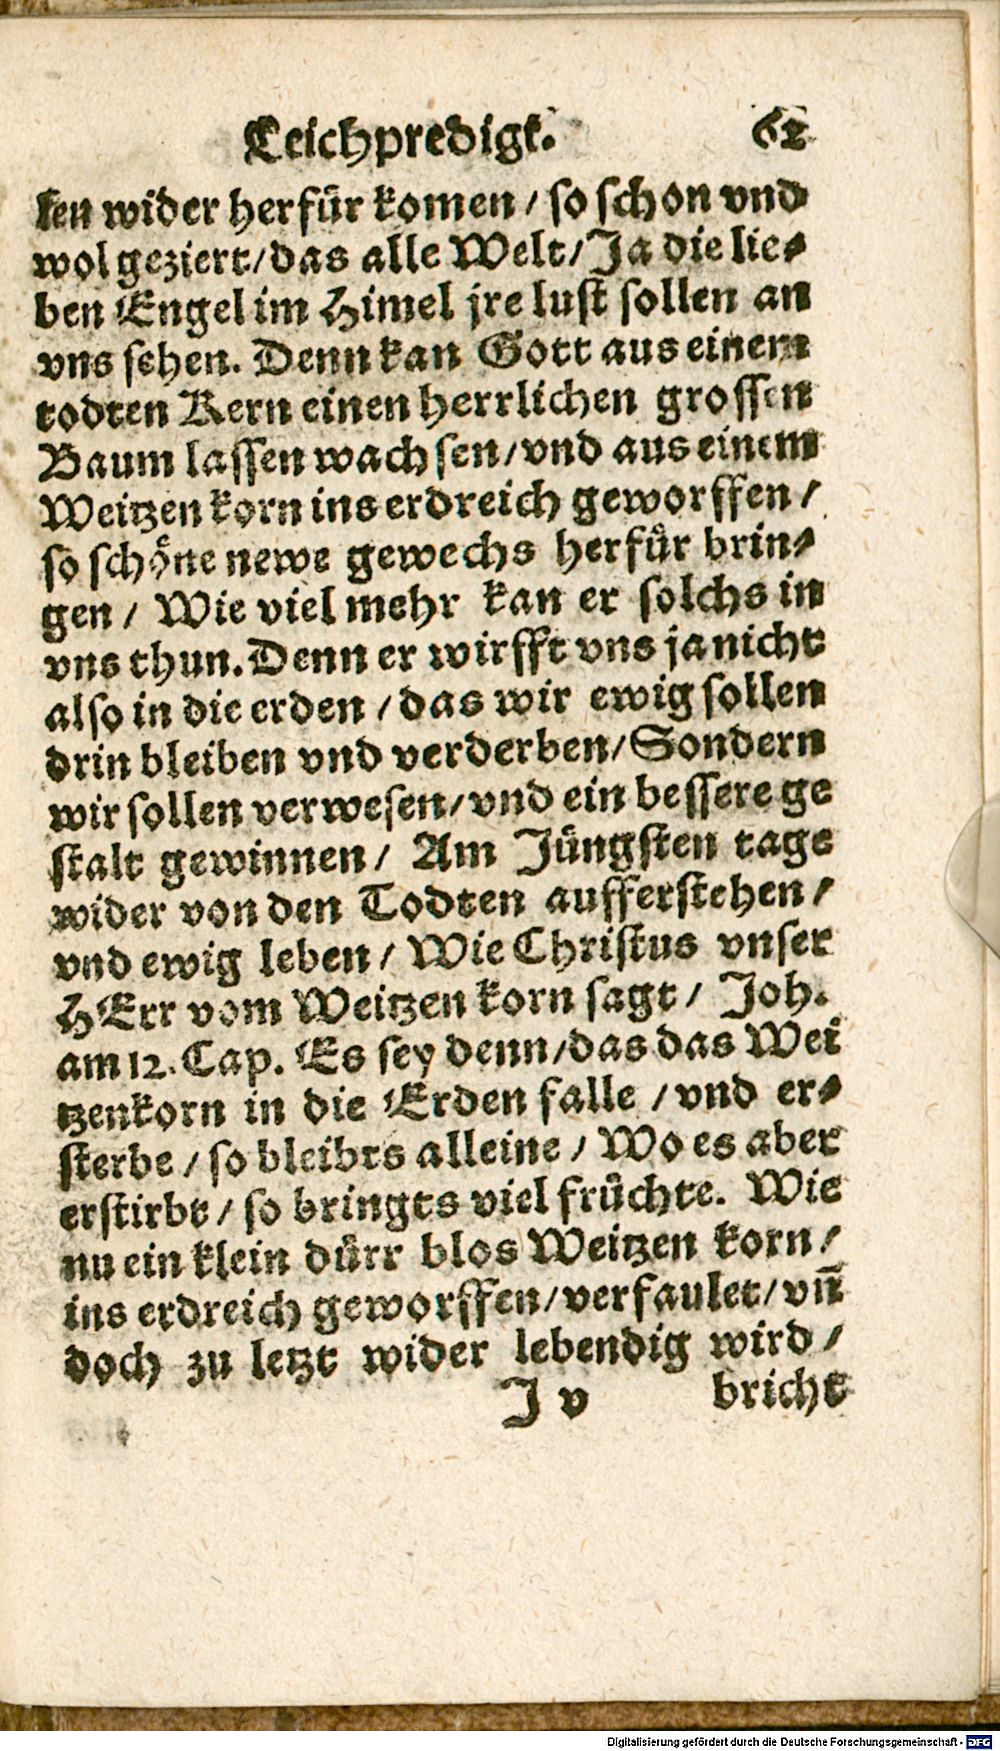 Leichpredigt. 62
ken wider herfür komen / so schon vnd
wol geziert / das alle Welt / Ja die lie⸗
ben Engel im Himel jre lust sollen an
vns sehen. Denn kan Gott aus einem
todten Kern einen herrlichen grossen
Baum lassen wachsen / vnd aus einem
Weitzen korn ins erdreich geworffen /
so schöne newe gewechs herfür brin⸗
gen / Wie viel mehr kan er solchs in
vns thun. Denn er wirfft vns ja nicht
also in die erden / das wir ewig sollen
drin bleiben vnd verderben / Sondern
wir sollen verwesen / vnd ein bessere ge
stalt gewinnen / Am Jüngsten tage
wider von den Todten aufferstehen /
vnd ewig leben / Wie Christus vnser
HErr vom Weitzen korn sagt / Joh.
am 12. Cap. Es sey denn / das das Wei
tzenkorn in die Erden falle / vnd er⸗
sterbe / so bleibts alleine / Wo es aber
erstirbt / so bringts viel früchte. Wie
nu ein klein dürr blos Weitzen korn /
ins erdreich geworffen / verfaulet / vn̄
doch zu letzt wider lebendig wird /
J v bricht
Digitalisierung gefördert durch die Deutsche Forschungsgemeinschaft - DFG